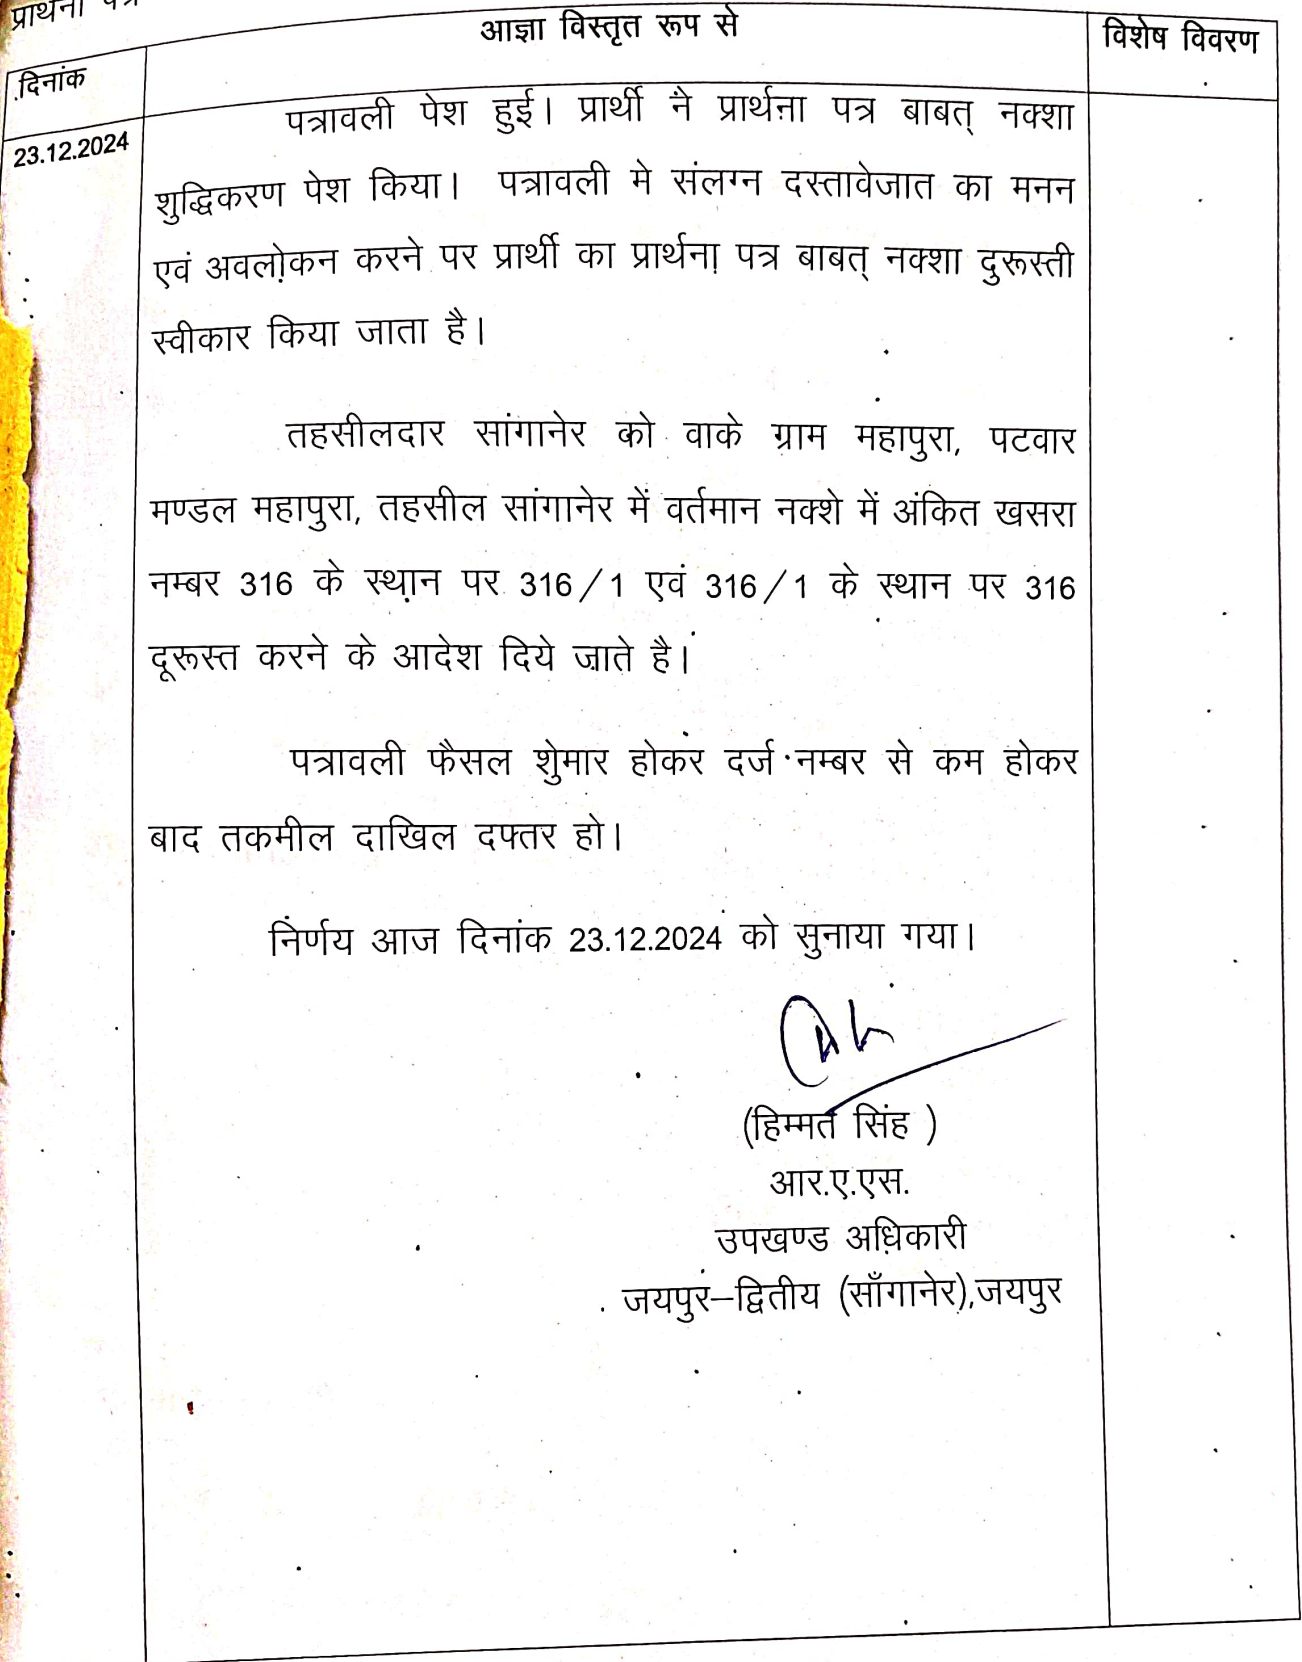 प्रार्थना
आज्ञा विस्तृत रूप से
विशेष विवरण
दिनांक
23.12.2024
पत्रावली पेश हुई। प्रार्थी ने प्रार्थना पत्र बाबत् नक्शा
शुद्धिकरण पेश किया। पत्रावली मे संलग्न दस्तावेजात का मनन
एवं अवलोकन करने पर प्रार्थी का प्रार्थना पत्र बाबत् नक्शा दुरूस्ती
स्वीकार किया जाता है।
तहसीलदार सांगानेर को वाके ग्राम महापुरा, पटवार
मण्डल महापुरा, तहसील सांगानेर में वर्तमान नक्शे में अंकित खसरा
नम्बर 316 के स्थान पर 316/1 एवं 316/1 के स्थान पर 316
दूरूस्त करने के आदेश दिये जाते है।
पत्रावली फैसल शुमार होकर दर्ज नम्बर से कम होकर
बाद तकमील दाखिल दफ्तर हो।
निर्णय आज दिनांक 23.12.2024 को सुनाया गया।
(हिम्मत सिंह )
आर.ए.एस.
उपखण्ड अधिकारी
जयपुर–द्वितीय (साँगानेर),जयपुर